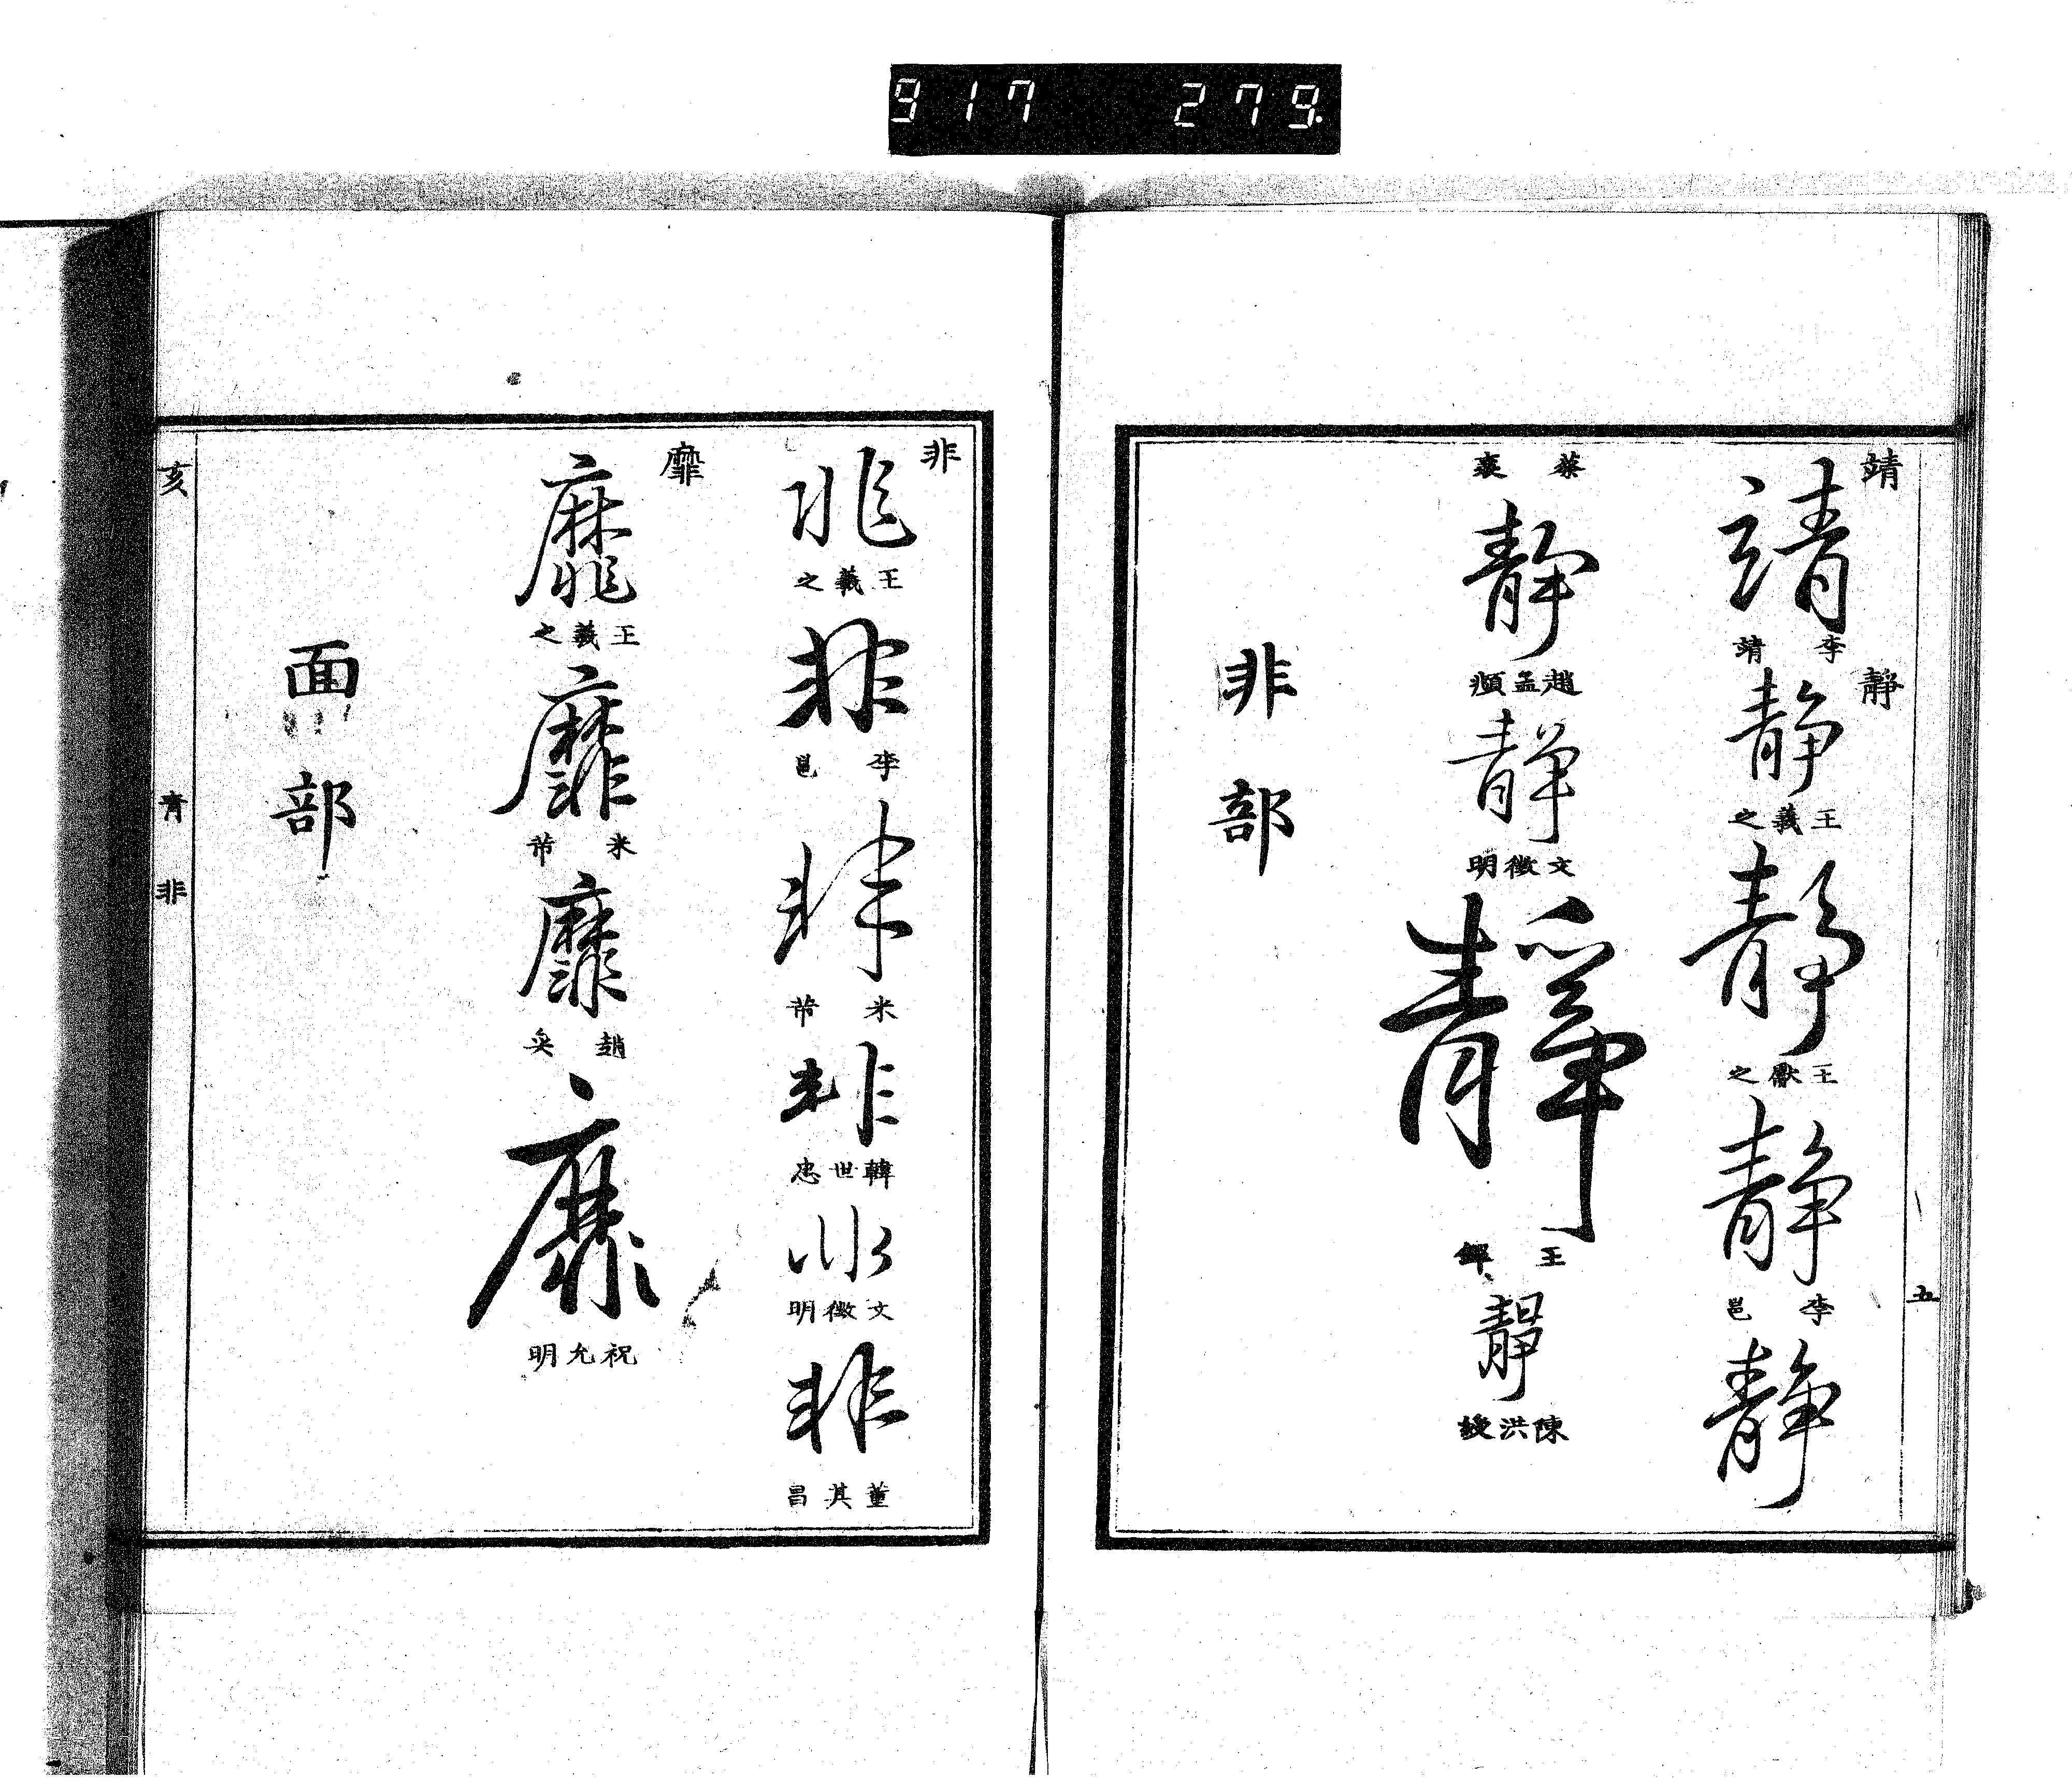 917 279.
靖
靖
李靖
靜
靜
王羲之
靜
王獻之
靜
李邕
靜
蔡襄
靜
趙孟頫
靜
文徵明
靜
王鐸
靜
陳洪綬
非部
五
非
非
王羲之
非
李邕
非
米芾
非
韓世忠
非
文徵明
非
董其昌
靡
靡
王羲之
靡
米芾
靡
趙奐
靡
祝允明
面部
亥 青非